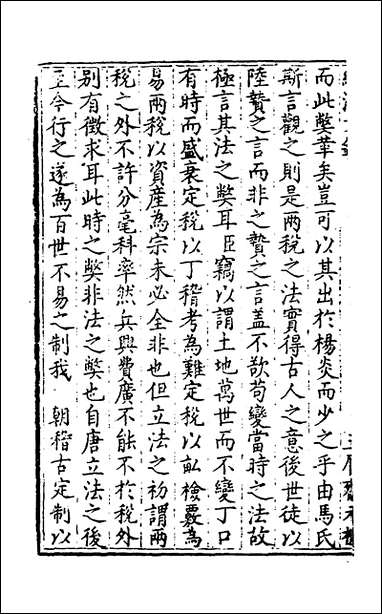 而此獘革矣豈可以其出於楊炎而少之乎由馬氏
斯言觀之則是兩稅之法實得古人之意後世徒以
陸贄之言而非之贄之言盖不欲苟變當時之法故
極言其法之獘耳臣竊以謂土地萬世而不變丁口
有時而盛衰定稅以丁稽考為難定稅以畝檢覈為
易兩稅以資産為宗未必全非也但立法之初謂兩
稅之外不許分毫科率然兵興費廣不能不於稅外
别有徵求耳此時之獘非法之獘也自唐立法之後
至今行之遂為百世不易之制我　朝稽古定制以